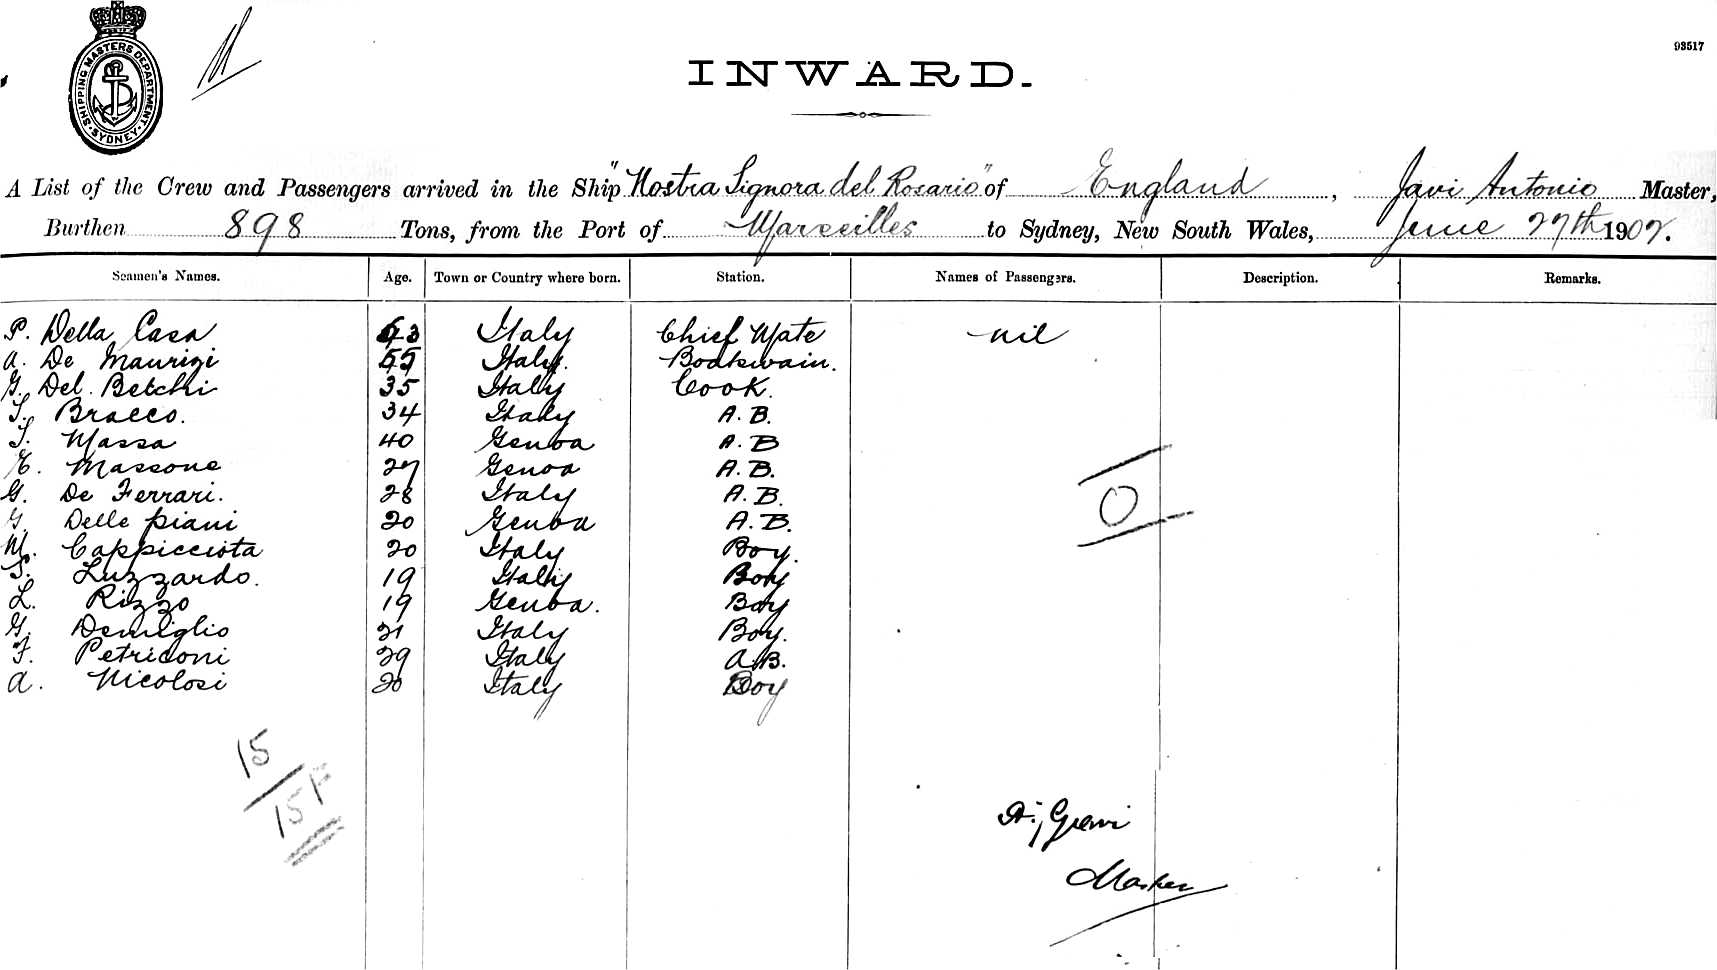 SHIPPING MASTERS DEPARTMENT
SYDNEY
93517
INWARD.
A List of the Crew and Passengers arrived in the Ship "Nostra Signora del Rosario" of England, Javi Antonio Master,
Burthen 898 Tons, from the Port of Marseilles to Sydney, New South Wales, June 27th 1902.
Seamen's Names. Age. Town or Country where born. Station. Names of Passengers. Description. Remarks.
P. Della Casa Italy Chief Mate nil
A. De Maurizi 55 Italy. Boatswain.
G. Del Betchi 35 Italy Cook.
Bracco. 34 Italy A.B.
Massa 40 Genoa A.B
E. Massone 27 Genoa A.B.
G. De Ferrari. 28 Italy A.B.
G. Delle piani 20 Genoa A.B.
M. Cappicciota 20 Italy Boy.
S. Luzzardo. 19 Italy Boy
L. Rizzo 19 Genoa. Boy
G. Demiglio 21 Italy Boy.
F. Petriconi 29 Italy A.B.
A. Nicolosi 20 Italy Boy
0
15
15F
Master